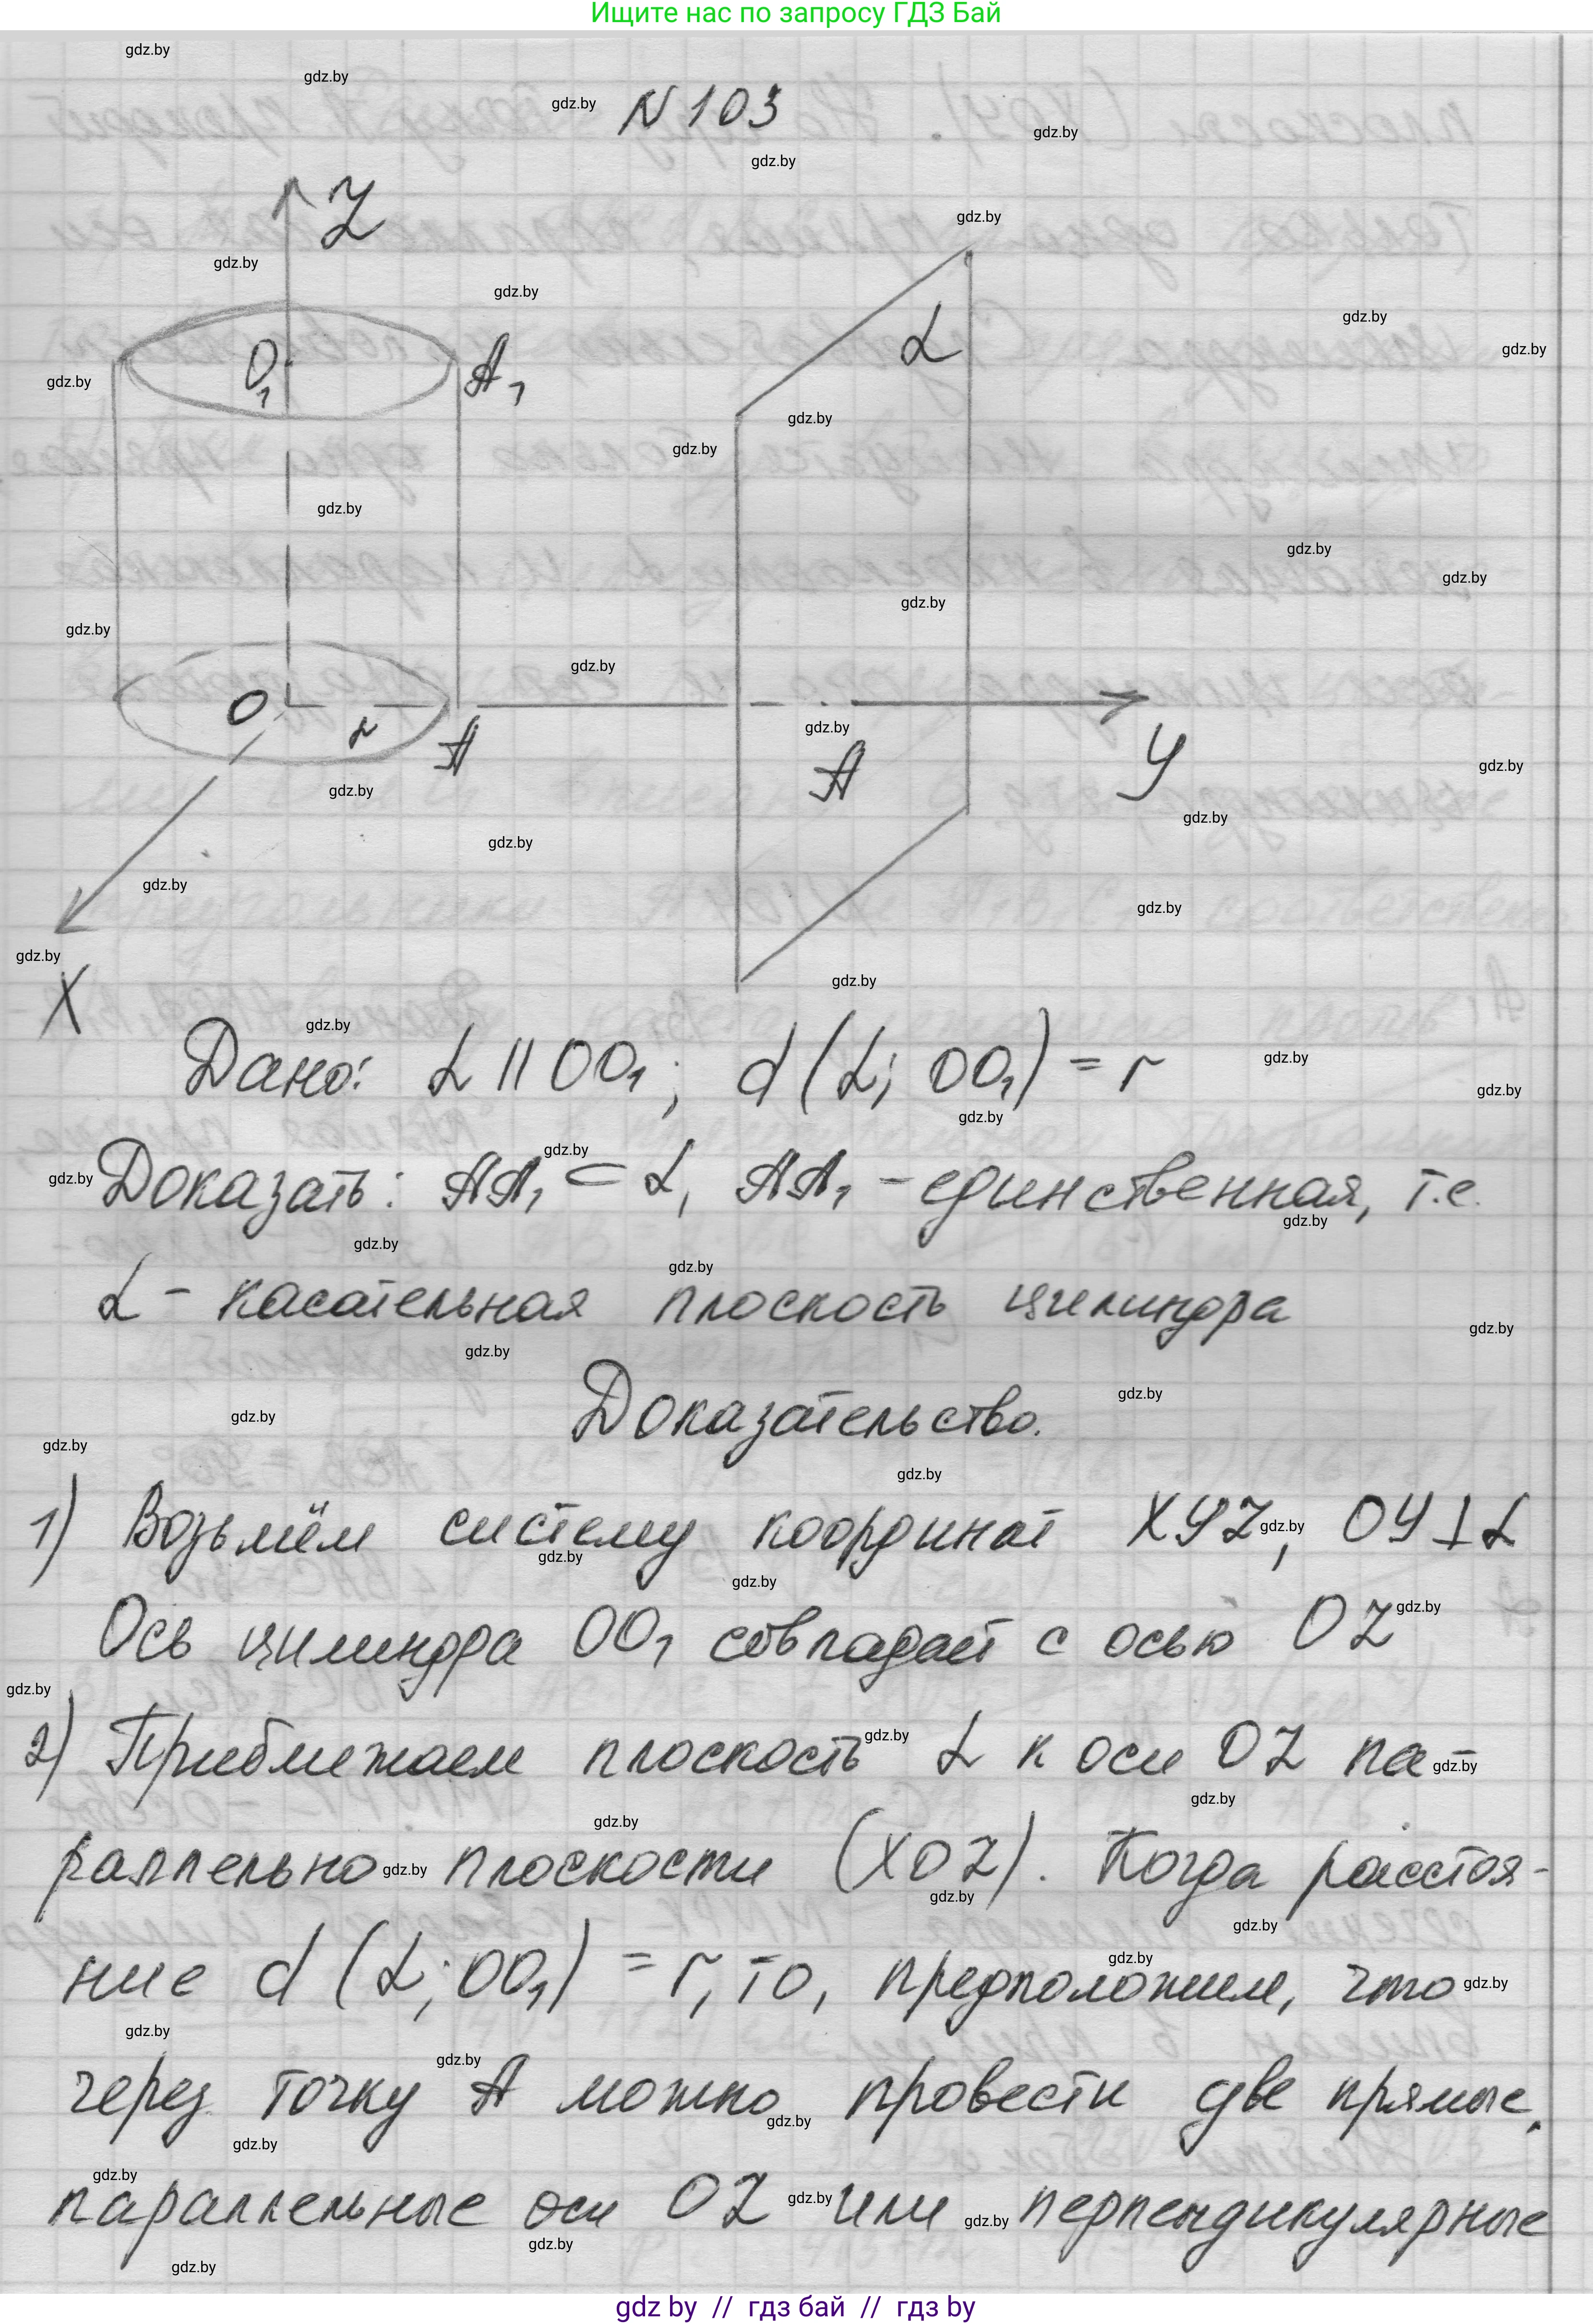 Ищите нас по запросу ГДЗ Бай
N 103
Z
O₁
A₁
α
O
r
A
A
У
X
Дано: α || OO₁; d(α; OO₁) = r
Доказать: AA₁ ⊂ α, AA₁ - единственная, т.е.
α - касательная плоскость цилиндра
Доказательство.
1) Возьмём систему координат ХУZ, ОУ⊥α
Ось цилиндра OO₁ совпадает с осью OZ
2) Приближаем плоскость α к оси OZ па-
раллельно плоскости (XOZ). Когда расстоя-
ние d(α; OO₁) = r, то, предположим, что
через точку А можно провести две прямые,
параллельные оси OZ или перпендикулярные
gdz by // гдз бай // гдз by